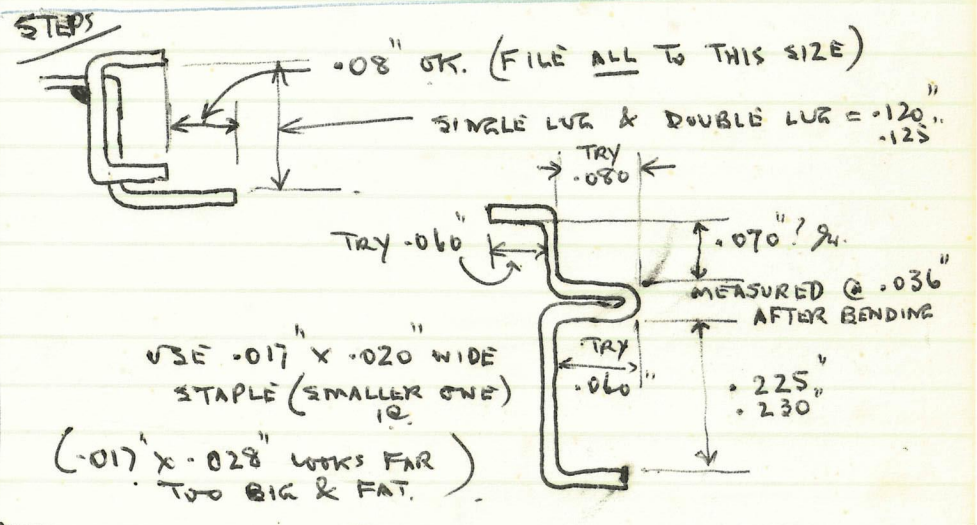 STEPS
.08" OK. (FILE ALL TO THIS SIZE)
SINGLE LUG & DOUBLE LUG = .120"
.125"
TRY
.080
TRY .060"
.070"?
MEASURED @ .036"
AFTER BENDING
USE .017" x .020" WIDE
STAPLE (SMALLER ONE)
IE
TRY
.060"
.225"
.230"
(.017" x .028" LOOKS FAR
TOO BIG & FAT.)